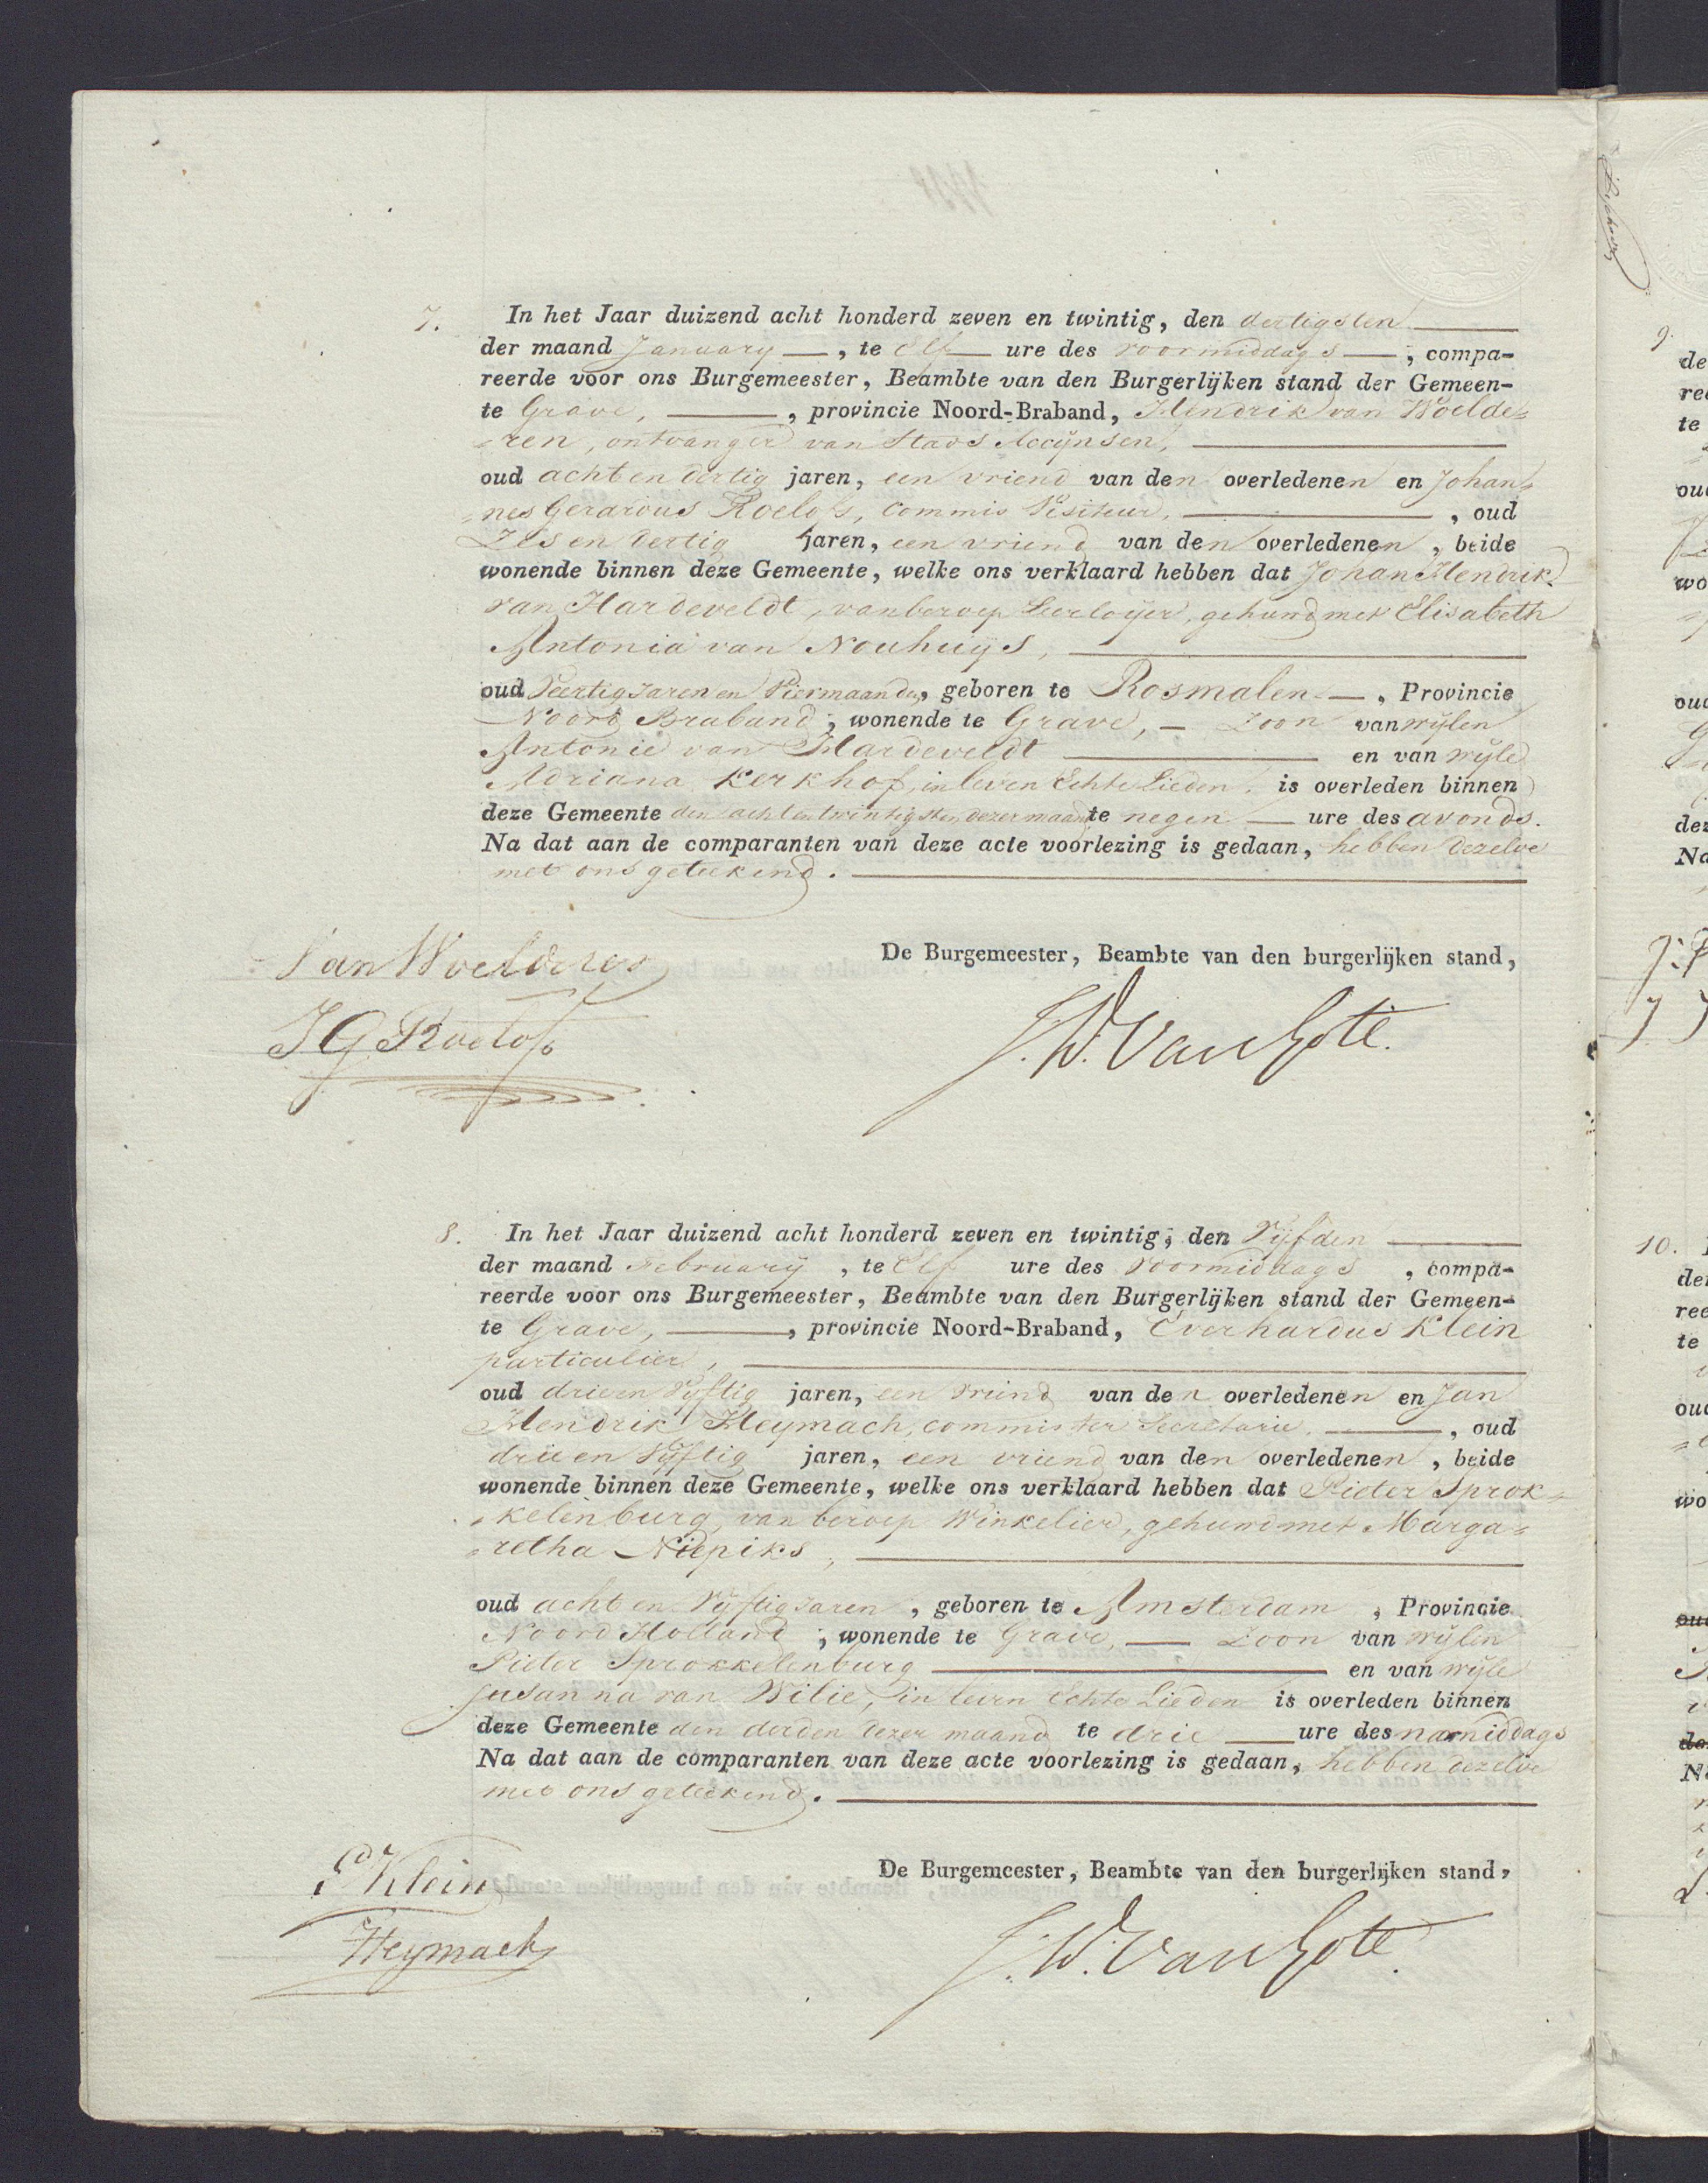 7. In het Jaar duizend acht honderd zeven en twintig, den dertigsten
der maand January, te Elf ure des voormiddags, compa-
reerde voor ons Burgemeester, Beambte van den Burgerlijken stand der Gemeen-
te Grave, provincie Noord-Braband, Hendrik van Woelde=
=ren, ontvanger van Stads Accijnsen,
oud acht en dertig jaren, een vriend van den overledenen en Johan=
=nes Gerardus Roelofs, Commis Visiteur, oud
Zes en dertig jaren, een vriend van den overledenen, beide
wonende binnen deze Gemeente, welke ons verklaard hebben dat Johan Hendrik
van Hardeveldt, van beroep Leerloijer, gehuwd met Elisabeth
Antonia van Nouhuijs,
oud Veertig Jaren en Vier maanden, geboren te Rosmalen, Provincie
Noord Braband, wonende te Grave, Zoon van wijlen
Antonie van Hardeveldt en van wijle
Adriana Kerkhof, in leven Echte Lieden, is overleden binnen
deze Gemeente den acht en twintigsten dezer maand te negen ure des avonds.
Na dat aan de comparanten van deze acte voorlezing is gedaan, hebben dezelve
met ons geteekend.
De Burgemeester, Beambte van den burgerlijken stand,
Van Woelderen
J G Roelofs
8. In het Jaar duizend acht honderd zeven en twintig, den Vijfden
der maand February, te Elf ure des voormiddags, compa-
reerde voor ons Burgemeester, Beambte van den Burgerlijken stand der Gemeen-
te Grave, provincie Noord-Braband, Everhardus Klein
particulier,
oud drie en Vijftig jaren, een vriend van den overledenen en Jan
Hendrik Heymach, commis ter Secretarie, oud
drie en Vijftig jaren, een vriend van den overledenen, beide
wonende binnen deze Gemeente, welke ons verklaard hebben dat Pieter Sprok=
=kelenburg, van beroep Winkelier, gehuwd met Marga=
=retha Niepiks,
oud acht en Vijftig Jaren, geboren te Amsterdam, Provincie
Noord Holland, wonende te Grave, Zoon van wijlen
Pieter Sprokkelenburg en van wijle
Susanna van Wilie, in leven Echte Lieden is overleden binnen
deze Gemeente den derden dezer maand te drie ure des namiddags
Na dat aan de comparanten van deze acte voorlezing is gedaan, hebben dezelve
met ons geteekend.
De Burgemeester, Beambte van den burgerlijken stand,
E Klein
Heymach
9.
10.